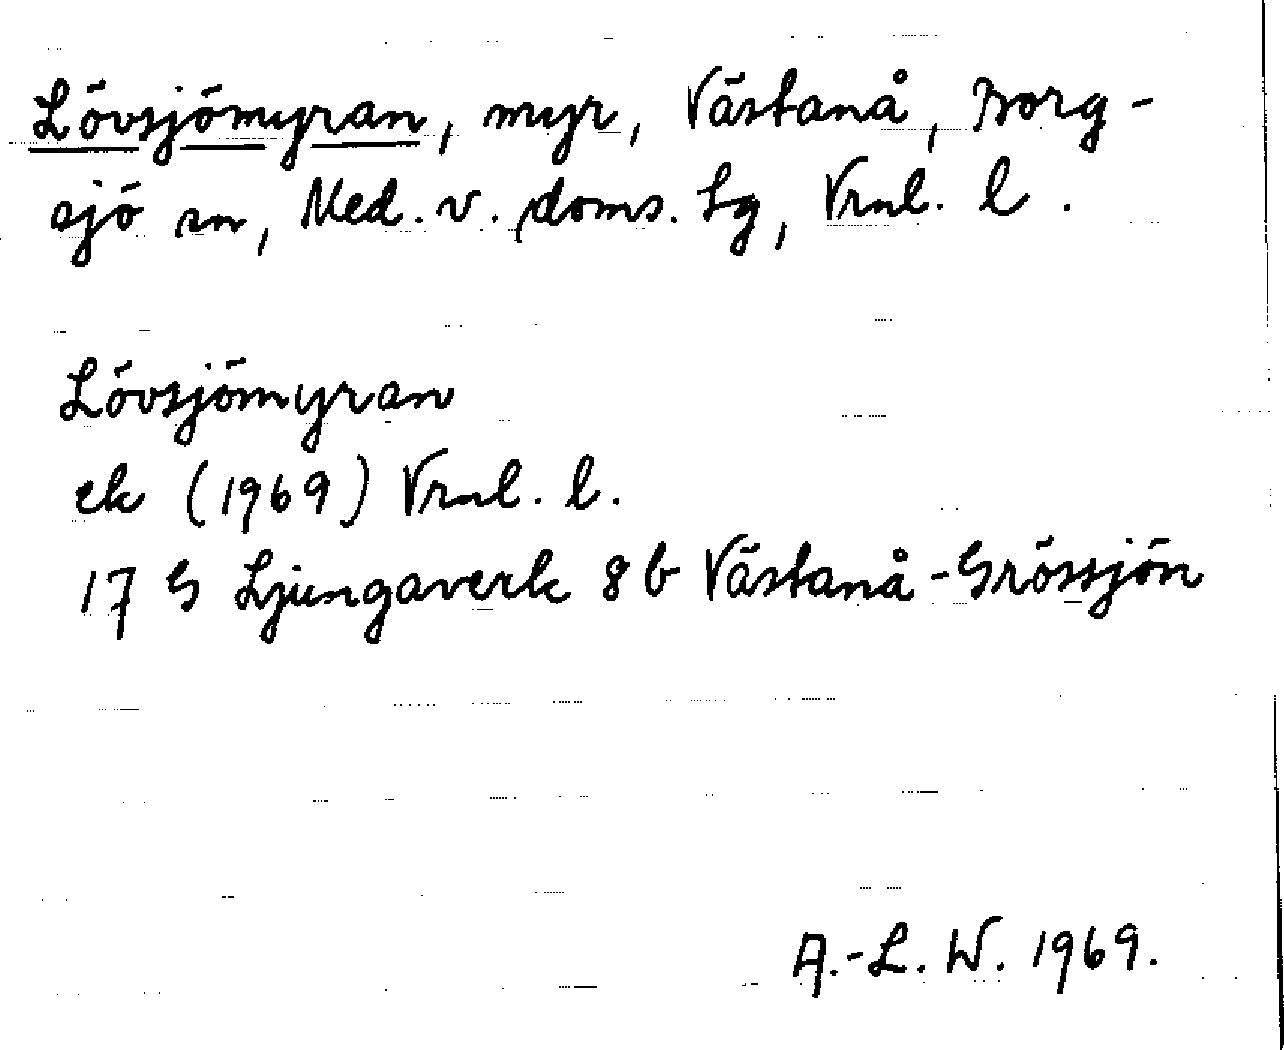 Lövsjömyran, myr, Västanå, Borg-
sjö sn, Med. v. doms. lg, Vrnl. l.
Lövsjömyran
ek (1969) Vrnl. l.
17 G Ljungaverk 8 b Västanå-Grössjön
A.-L. W. 1969.